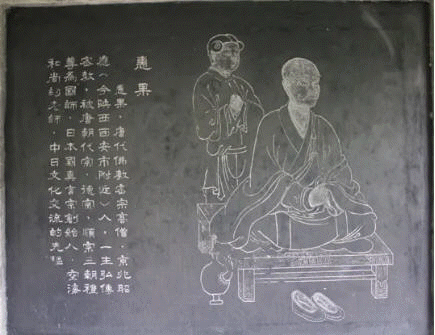 惠果
惠果，唐代佛教密宗高僧，京兆昭
應（今陕西西安市附近）人，一生弘傳
密教，被唐朝代宗、德宗、順宗三朝禮
尊為國師，日本國真言宗創始人、空海
和尚的老師，中日文化交流的先驅